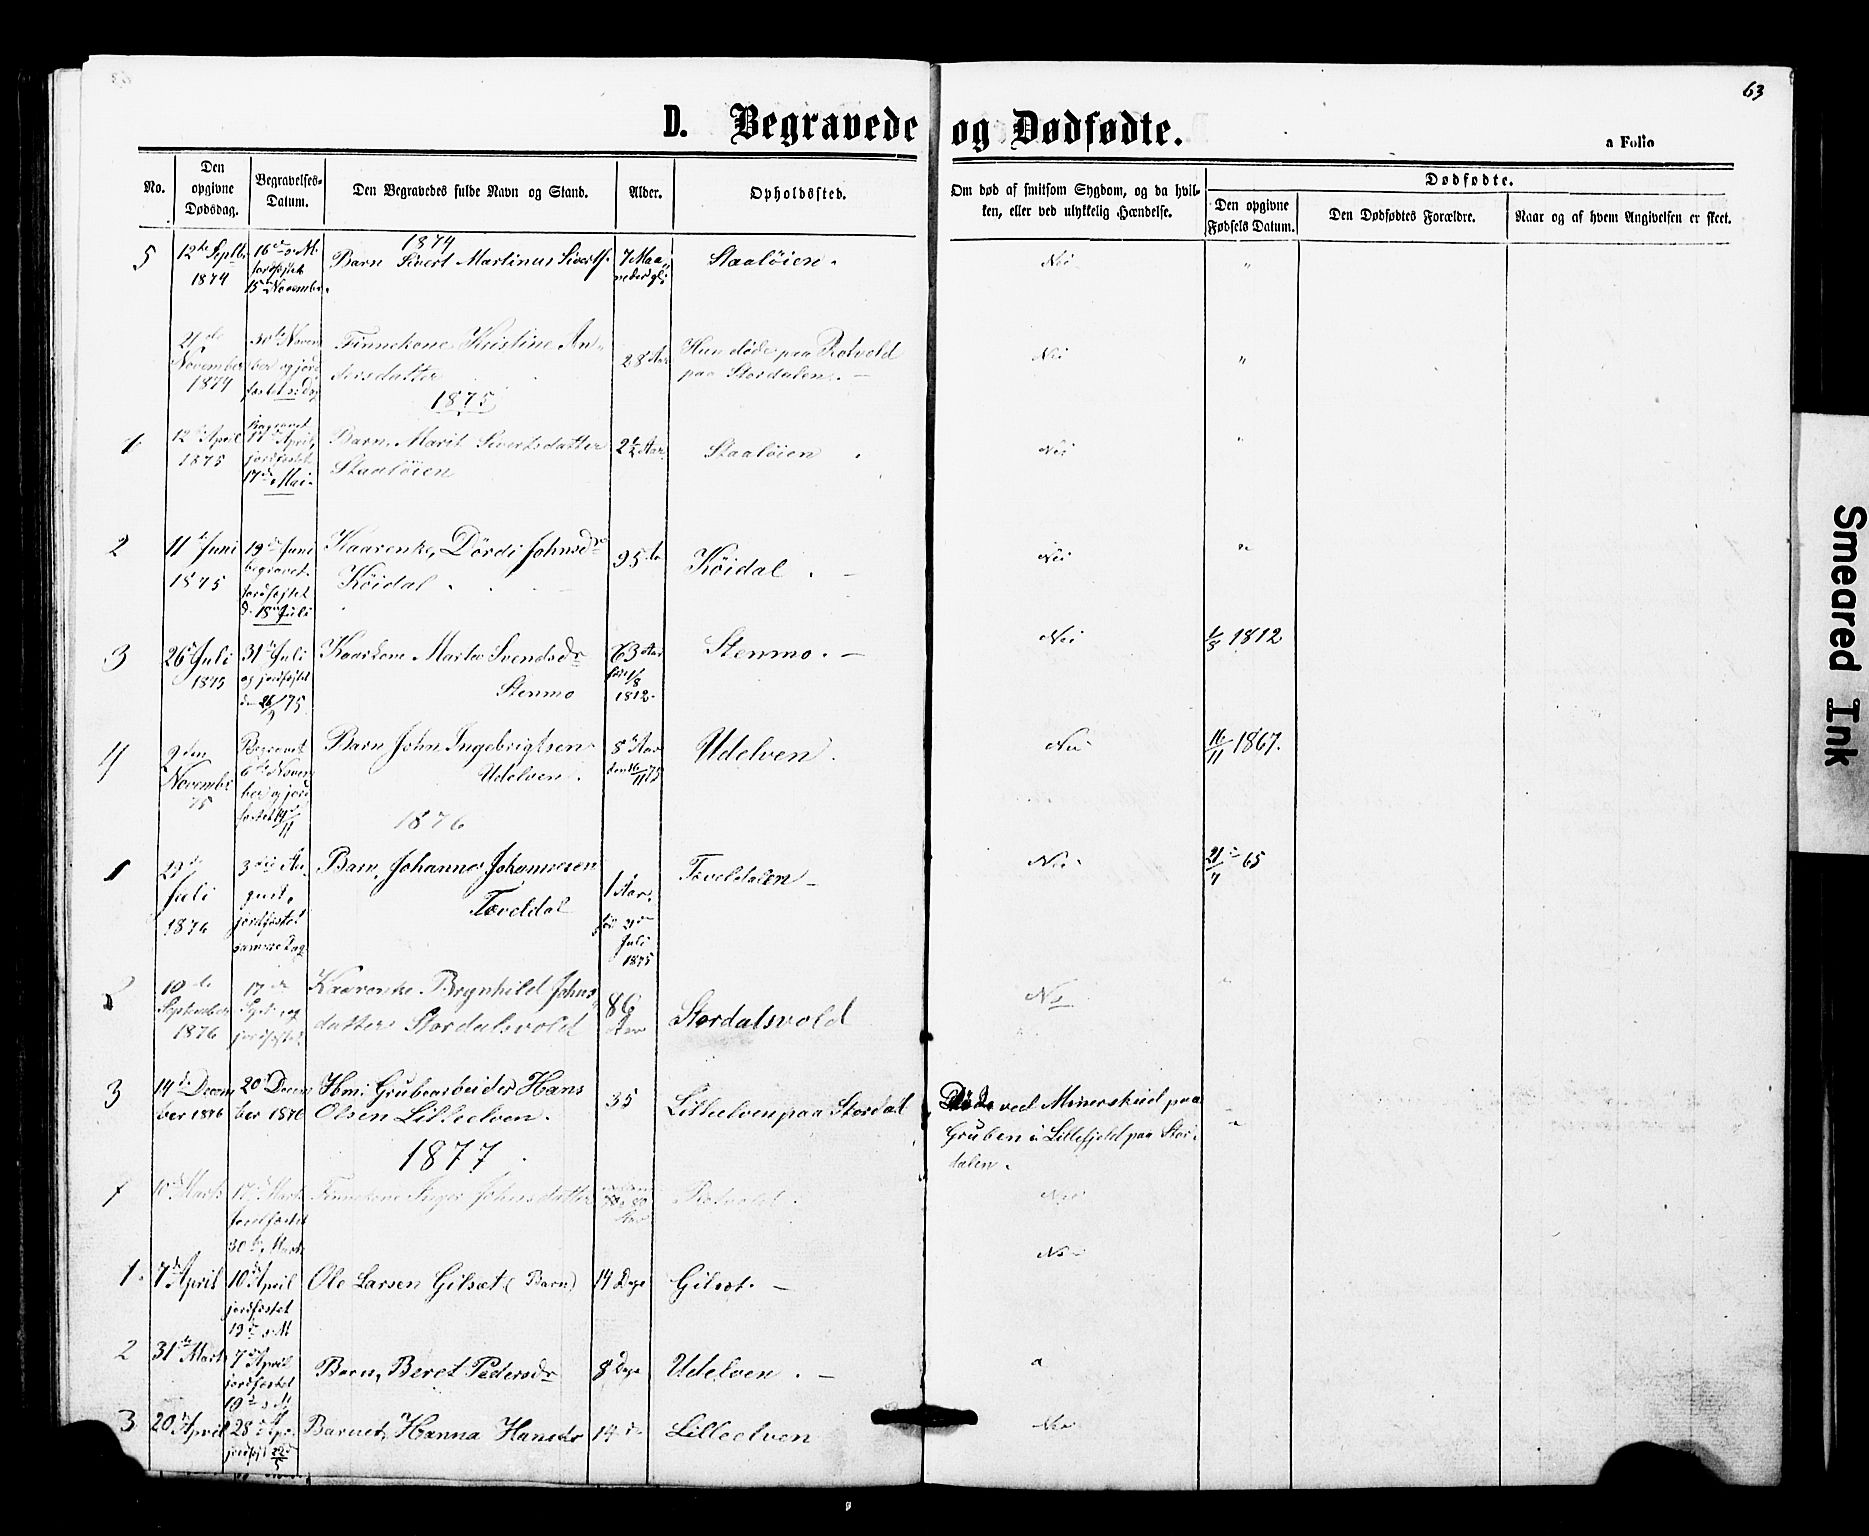 63
D. Begravede og Dødfødte.
a Folio
No.
Den opgivne Dødsdag.
Begravelses-Datum.
Den Begravedes fulde Navn og Stand.
Alder.
Opholdssted.
Om død af smitsom Sygdom, og da hvilken, eller ved ulykkelig Hændelse.
Dødfødte.
Den opgivne Fødsels Datum.
Den Dødfødtes Forældre.
Naar og af hvem Angivelsen er skeet.
1874
5 12te Septb. 1874
16de s. M. jordfæstet 15de Novembr.
Barn Sivert Martinus Siverts.
7 Maaneder gl.
Staaløien.
Nei
"
21de November 1874
30te November og jordfæstet s: Dag
Finnekone Kristine Andersdatter
28 Aar
Hun døde paa Rotvold paa Stordalen. —
Nei
"
1875
1 12te April 1875
Begravet 17de April, jordfæstet 17de Mai.
Barn, Marit Sivertsdatter Staaløien
2½ Aar.
Staaløien
Nei
"
2 11te Juni 1875
19de Juni begravet. jordfæstet d. 18de Juli
Kaarenke, Dørdi Johnsdr Køidal
95
Køidal. —
Nei
"
3 26de Juli 1875
31te Juli og jordfæstet den 26/9 75.
Kaarkone Marta Svendsdr Stenmo
63 Aar 1/8 1812.
Stenmo. —
Nei
1/8 1812
4 2den Novembr 75
Begravet 6te November og jordfæstet 14/11
Barn John Ingebrigtsen Udelven.
8 Aar den 16/11 75
Udelven.
Nei
16/11 1867.
1876
1 29de Juli 1876
3die August, jordfæstet samme Dag
Barn, Johannes Johannesen Toveldal
1 Aar. Juli 1875
Toveldalen —
Nei
21/7 65
2 10de September 1876
17de Sept. og jordfæstet
Kaarenke Brynhild Johnsdatter Stordalsvold
86 Aar
Stordalsvold
Nei
3 14de December 1876
20de December 1876
Grubearbeider Hans Olsen Lilleelven.
35
Lilleelven paa Stordal
Døde ved Minerskud paa Gruben i Lillefjeld paa Stordalen.
"
1877
1 10de Marts
17de Marts jordfæstet 30te Marts
Finnekone Inger Johnsdatter
Aar
Rotvold.
Nei
1. 7de April
10de April jordfæstet 19de s M
Ole Larsen Gilset (Barn)
14 Dage
Gilset. —
Nei
2 31te Marts
7de April jordfæstet 19de s M.
Barn, Beret Pedersdr
8 Dage
Udelven. —
"
3 20de April
28de Apr. jordfæst
Barnet, Hanna Hansdr
14 do
Lilleelven
Nei
Smeared Ink